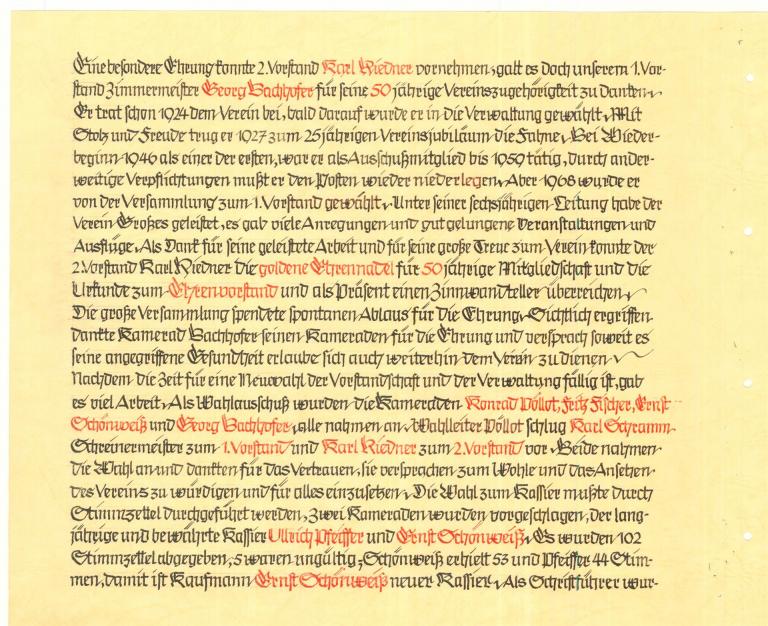 Eine besondere Ehrung konnte 2. Vorstand Karl Riedner vornehmen, galt es doch unserem 1. Vor-
stand Zimmermeister Georg Bachhofer für seine 50 jährige Vereinszugehörigkeit zu danken.
Er trat schon 1924 dem Verein bei, bald darauf wurde er in die Verwaltung gewählt. Mit
Stolz und Freude trug er 1927 zum 25jährigen Vereinsjubiläum die Fahne. Bei Wieder-
beginn 1946 als einer der ersten, war er als Ausschußmitglied bis 1959 tätig, durch ander-
weitige Verpflichtungen mußt er den Posten wieder niederlegen. Aber 1968 wurde er
von der Versammlung zum 1. Vorstand gewählt. Unter seiner sechsjährigen Leitung habe der
Verein Großes geleistet, es gab viele Anregungen und gut gelungene Veranstaltungen und
Ausflüge. Als Dank für seine geleistete Arbeit und für seine große Treue zum Verein konnte der
2. Vorstand Karl Riedner die goldene Ehrennadel für 50 jährige Mitgliedschaft und die
Urkunde zum Ehrenvorstand und als Präsent einen Zinnwandteller überreichen.
Die große Versammlung spendete spontanen Ablaus für die Ehrung. Sichtlich ergriffen
dankte Kamerad Bachhofer seinen Kameraden für die Ehrung und versprach soweit es
seine angegriffene Gesundheit erlaube sich auch weiterhin dem Verein zu dienen.
Nachdem die Zeit für eine Neuwahl der Vorstandschaft und der Verwaltung fällig ist, gab
es viel Arbeit. Als Wahlausschuß wurden die Kameraden Konrad Pöllot, Fritz Fischer, Ernst
Schönweiß und Georg Bachhofer, alle nahmen an. Wahlleiter Pöllot schlug Karl Schramm
Schreinermeister zum 1. Vorstand und Karl Riedner zum 2. Vorstand vor. Beide nahmen
die Wahl an und dankten für das Vertrauen, sie versprachen zum Wohle und das Ansehen
des Vereins zu würdigen und für alles einzusetzen. Die Wahl zum Kassier mußte durch
Stimmzettel durchgeführt werden, Zwei Kameraden wurden vorgeschlagen, der lang-
jährige und bewährte Kassier Ullrich Pfeiffer und Ernst Schönweiß. Es wurden 102
Stimmzettel abgegeben, 5 waren ungültig, Schönweiß erhielt 53 und Pfeiffer 44 Stim-
men, damit ist Kaufmann Ernst Schönweiß neuer Kassier. Als Schriftführer wur-